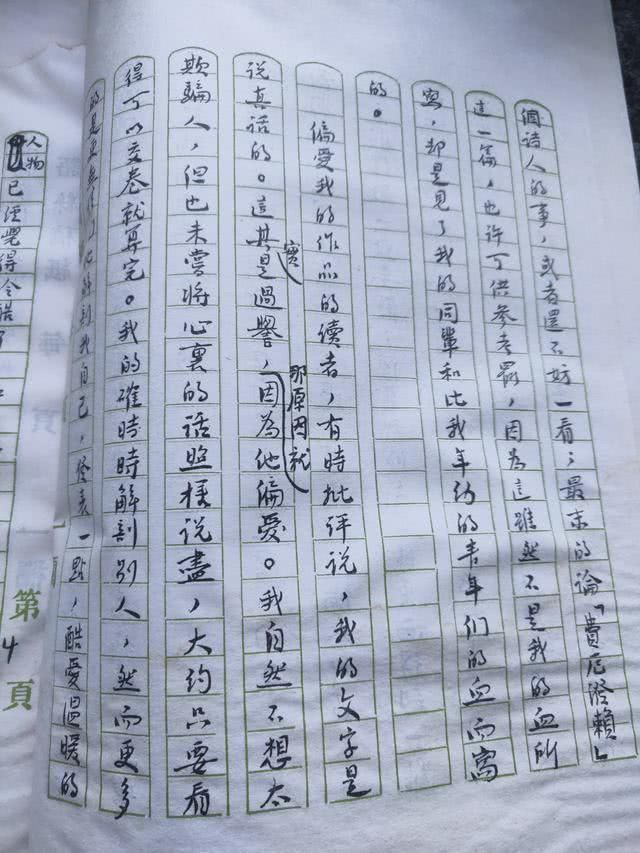 個詩人的事，或者還不妨一看；最末的論「費厄潑賴」
這一篇，也許可供參考罷，因為這雖然不是我的血所
寫，却是見了我的同輩和比我年幼的青年們的血而寫
的。
偏愛我的作品的讀者，有時批評說，我的文字是
说真話的。這其實是過譽，那原因就因為他偏愛。我自然不想太
欺騙人，但也未嘗將心裏的話照樣說盡，大約只要看
得可以交卷就算完。我的確時時解剖別人，然而更多
的是更無情面地解剖我自己，發表一點，酷愛溫暖的
人物已經覺得冷酷了
第4頁